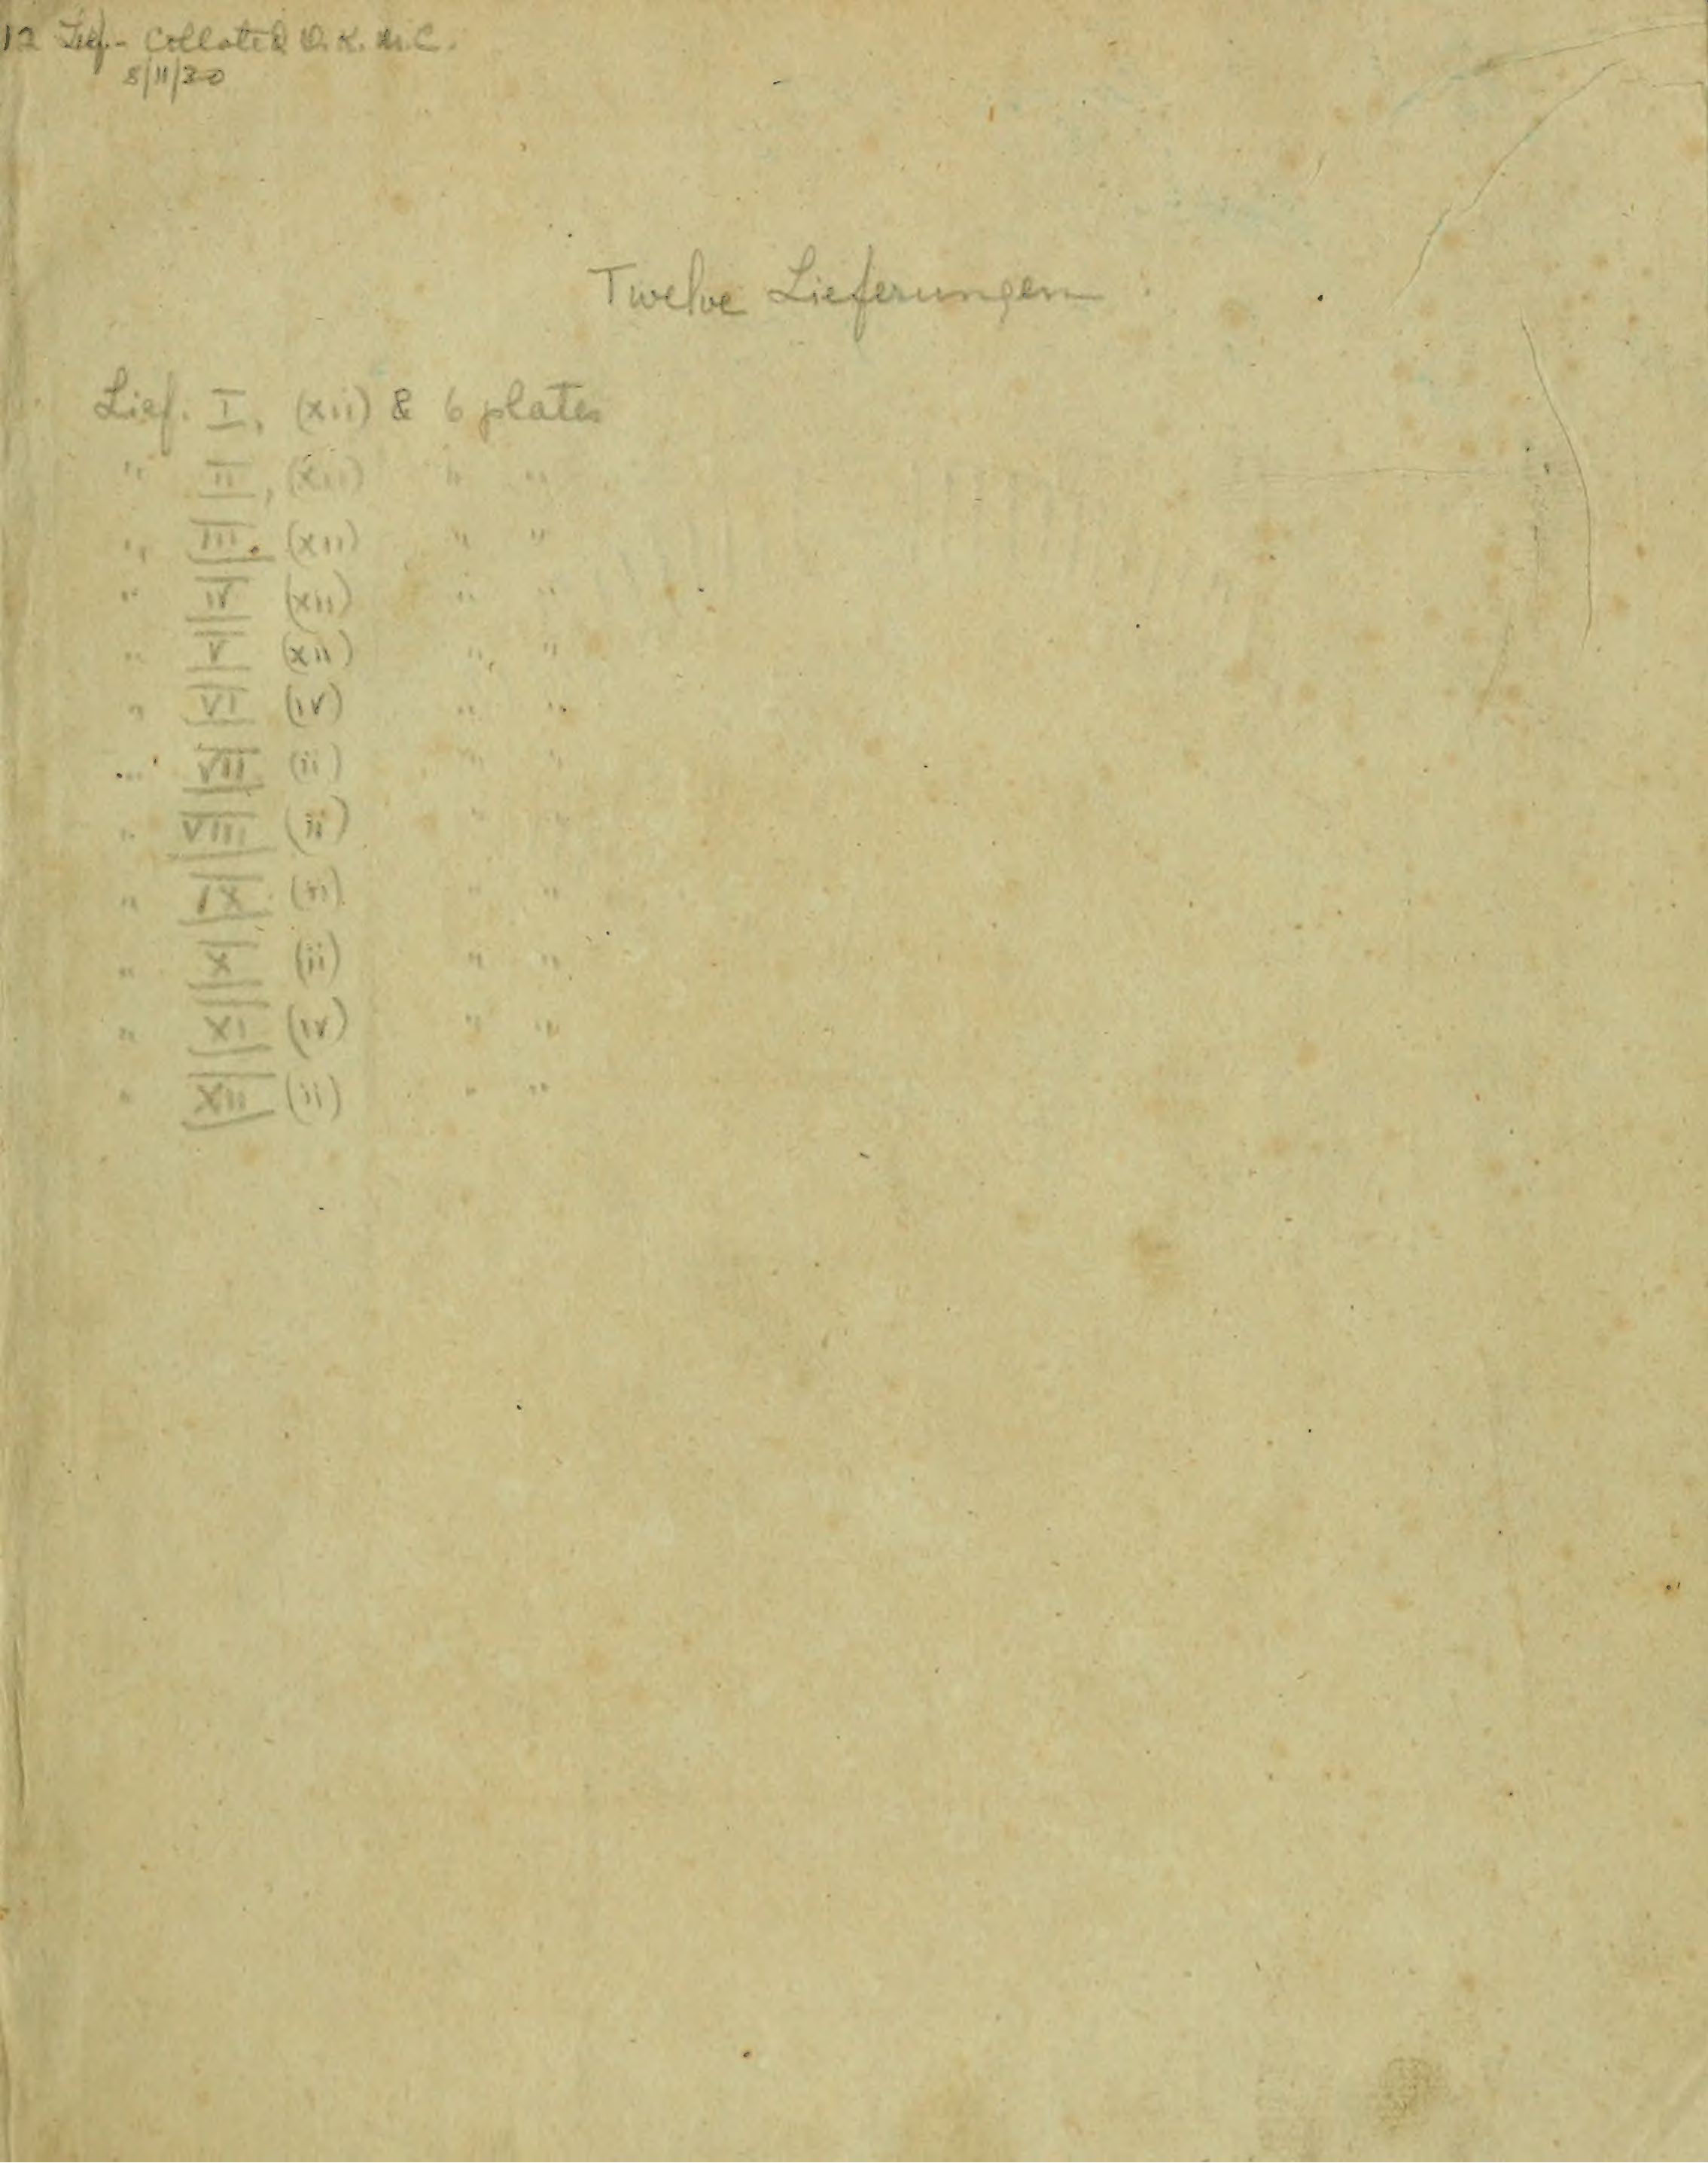 12 Lief.- Collated O.K. M.C.
8/11/30
Twelve Lieferungen
Lief. I, (xii) & 6 plates
" II, (xii) " "
" III. (xii) " "
" IV (xii) " "
" V (xii) " "
" VI (iv) " "
" VII (ii) " "
" VIII (ii) " "
" IX (ii) " "
" X (ii) " "
" XI (iv) " "
" XII (ii) " "